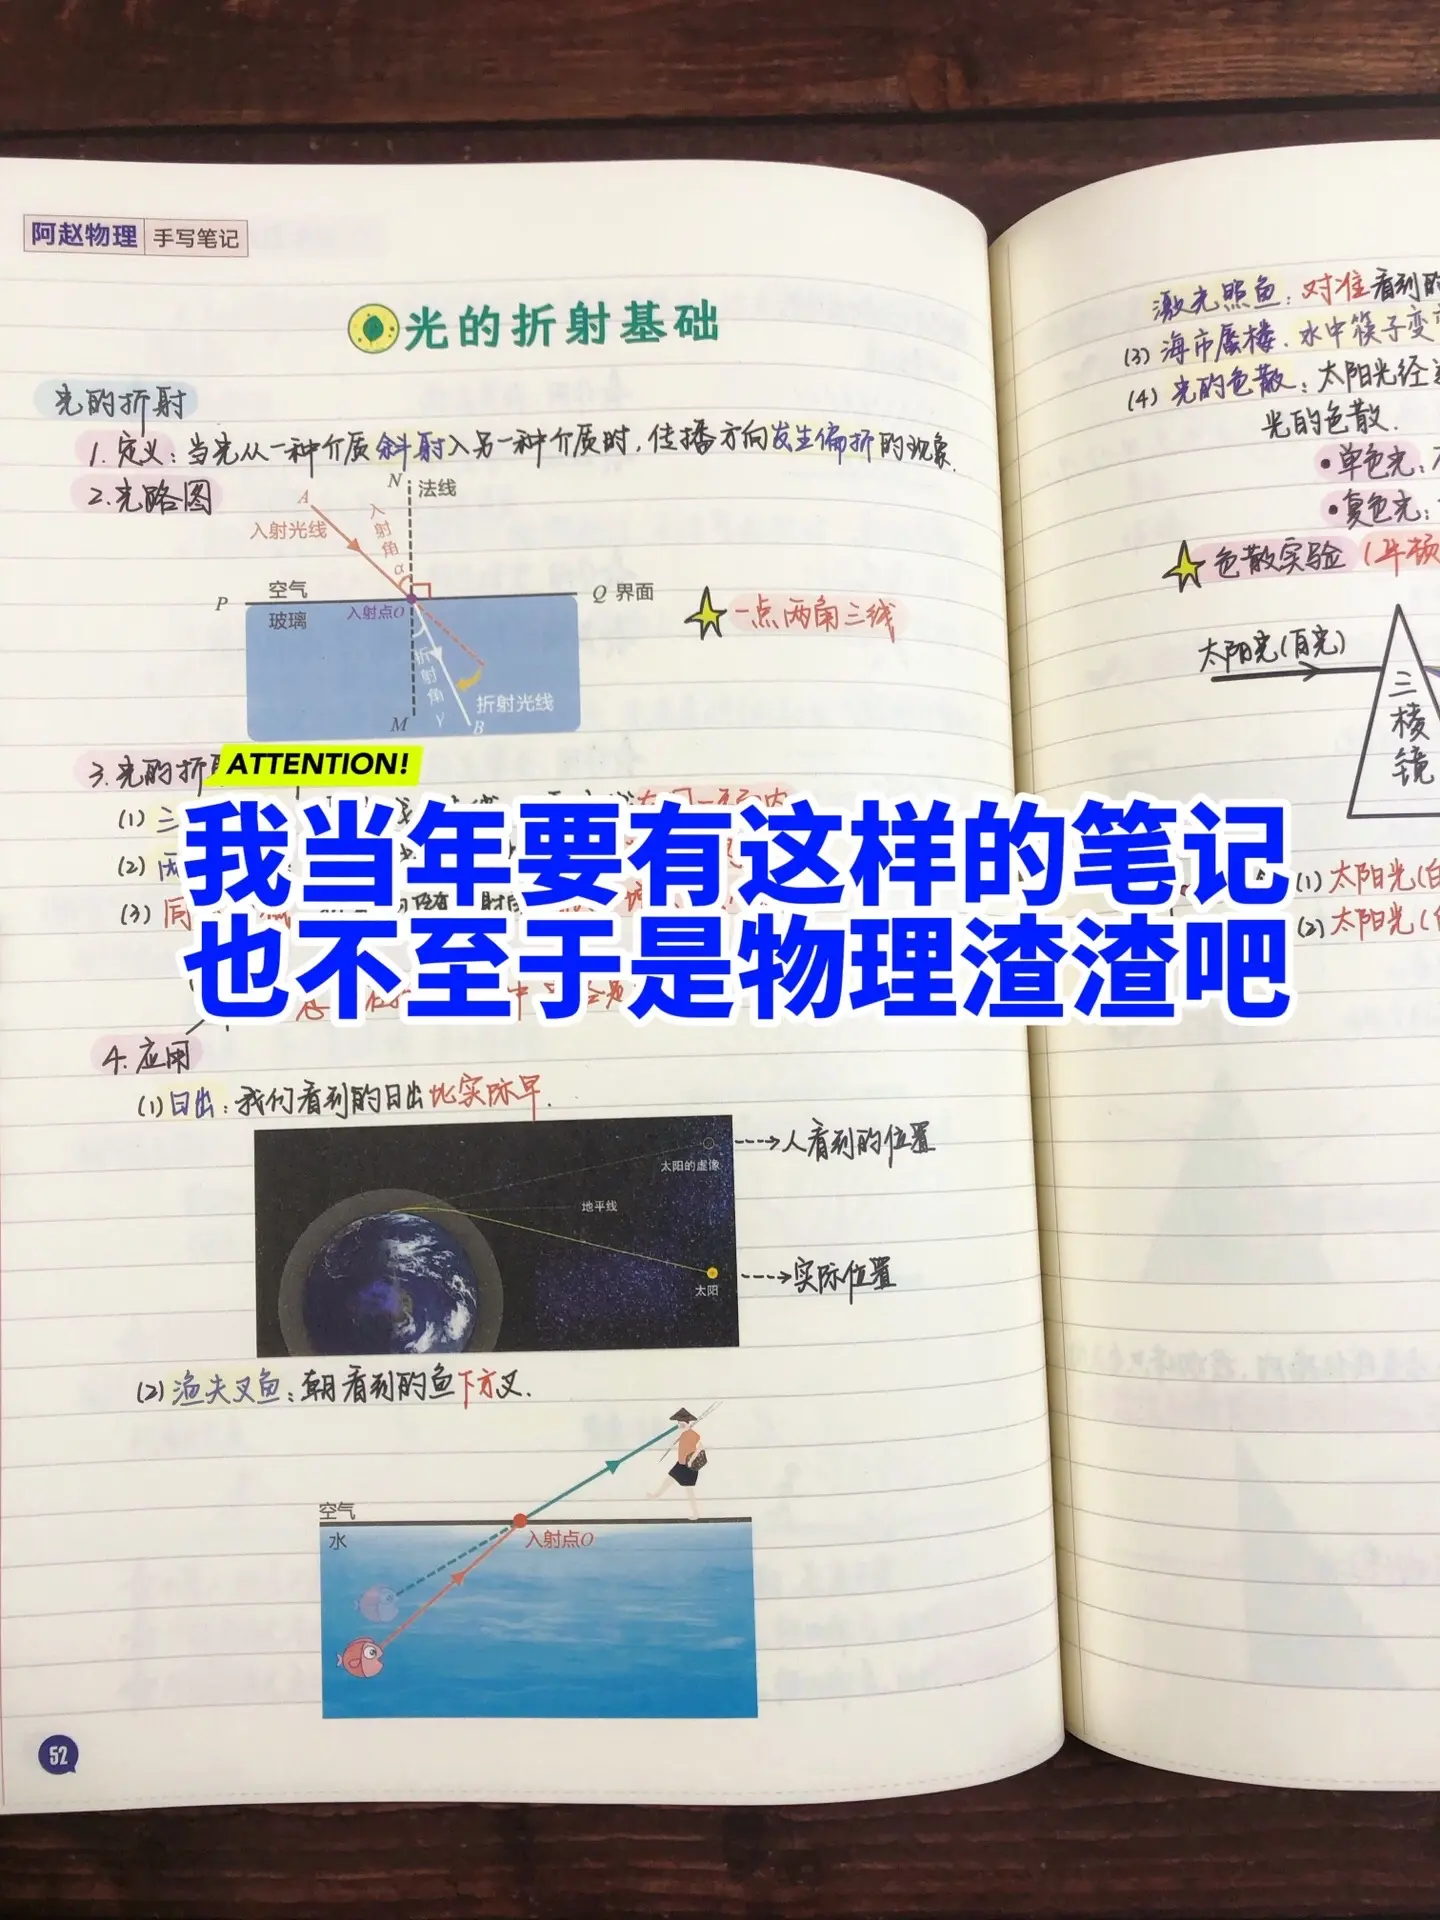 阿赵物理 手写笔记
光的折射基础
光的折射
1.定义：当光从一种介质斜射入另一种介质时，传播方向发生偏折的现象.
2.光路图
N
法线
A
入射光线
入射角α
空气
P
Q 界面
玻璃
入射点O
一点两角三线
折射角γ
折射光线
M
B
3.光的折射
ATTENTION!
(1) 三
(2)
(3) 同
我当年要有这样的笔记
也不至于是物理渣渣吧
4.应用
(1)日出：我们看到的日出比实际早.
人看到的位置
太阳的虚像
地平线
实际位置
太阳
(2)渔夫叉鱼：朝看到的鱼下方叉.
空气
水
入射点O
52
激光照鱼：对准看到的
(3) 海市蜃楼、水中筷子变
(4) 光的色散：太阳光经
光的色散.
•单色光：
•复色光：
色散实验（牛顿
太阳光(白光)
三棱镜
(1)太阳光(白
(2)太阳光(